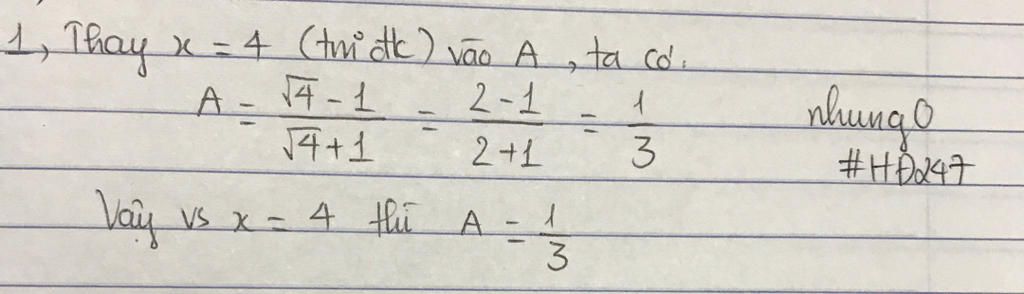 1, Thay x = 4 (tmđk) vào A, ta có:
A = \frac{\sqrt{4} - 1}{\sqrt{4} + 1} = \frac{2 - 1}{2 + 1} = \frac{1}{3}
nhung0
#HĐ247
Vậy vs x = 4 thì A = \frac{1}{3}